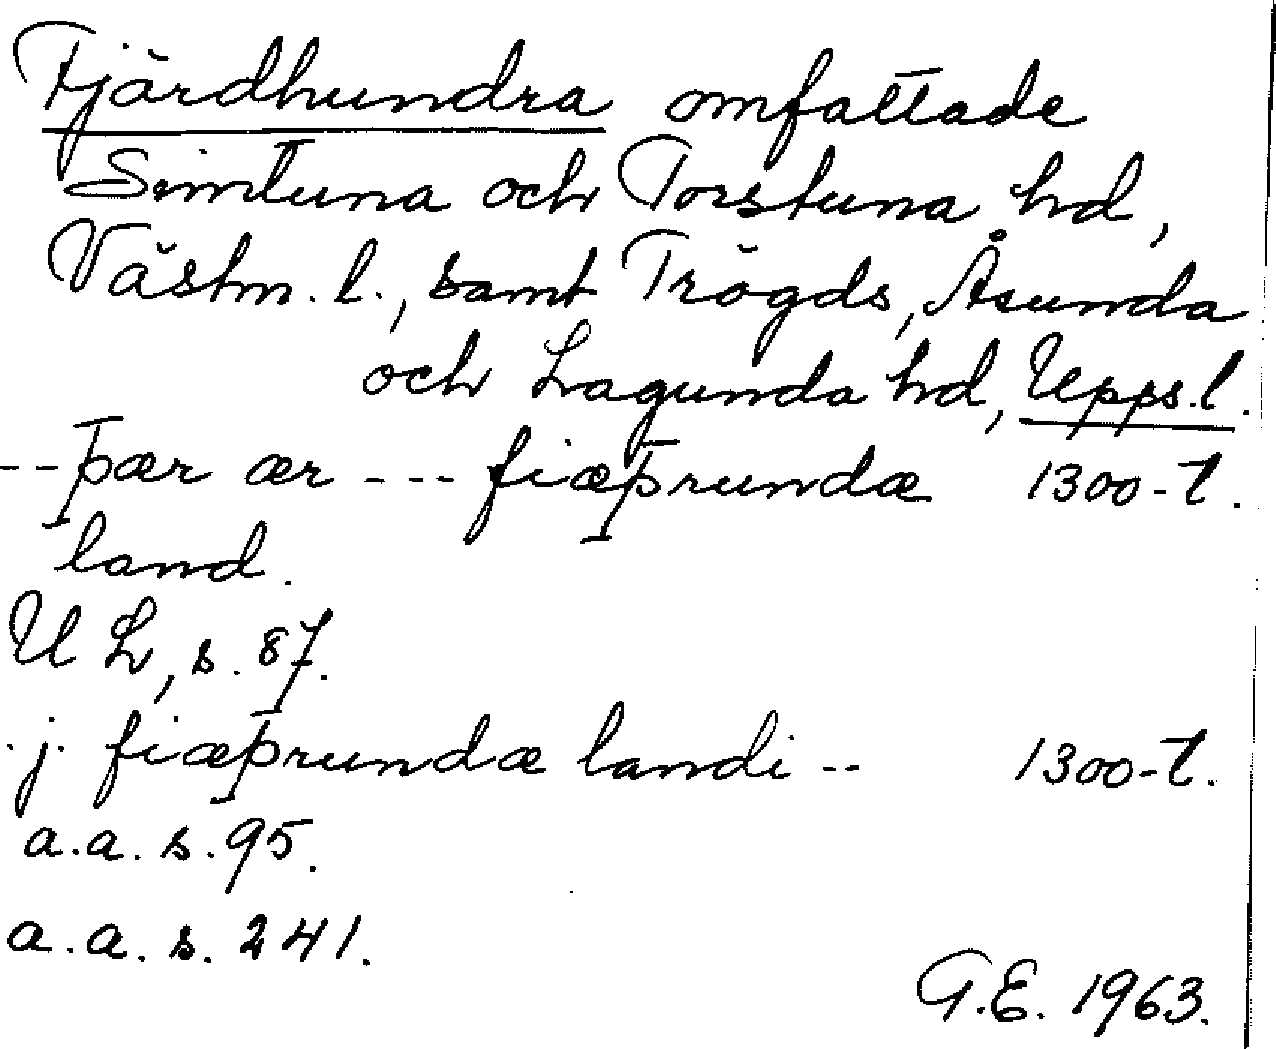 Fjärdhundra omfattade
Simtuna och Torstuna hd,
Västm. l., samt Trögds, Åsunda
och Lagunda hd, Upps. l.
--þær ær --- fiæþrundæ 1300-t.
land.
U L, s. 87.
j. fiæþrundæ landi -- 1300-t.
a.a. s. 95.
a.a. s. 241.
G.E. 1963.